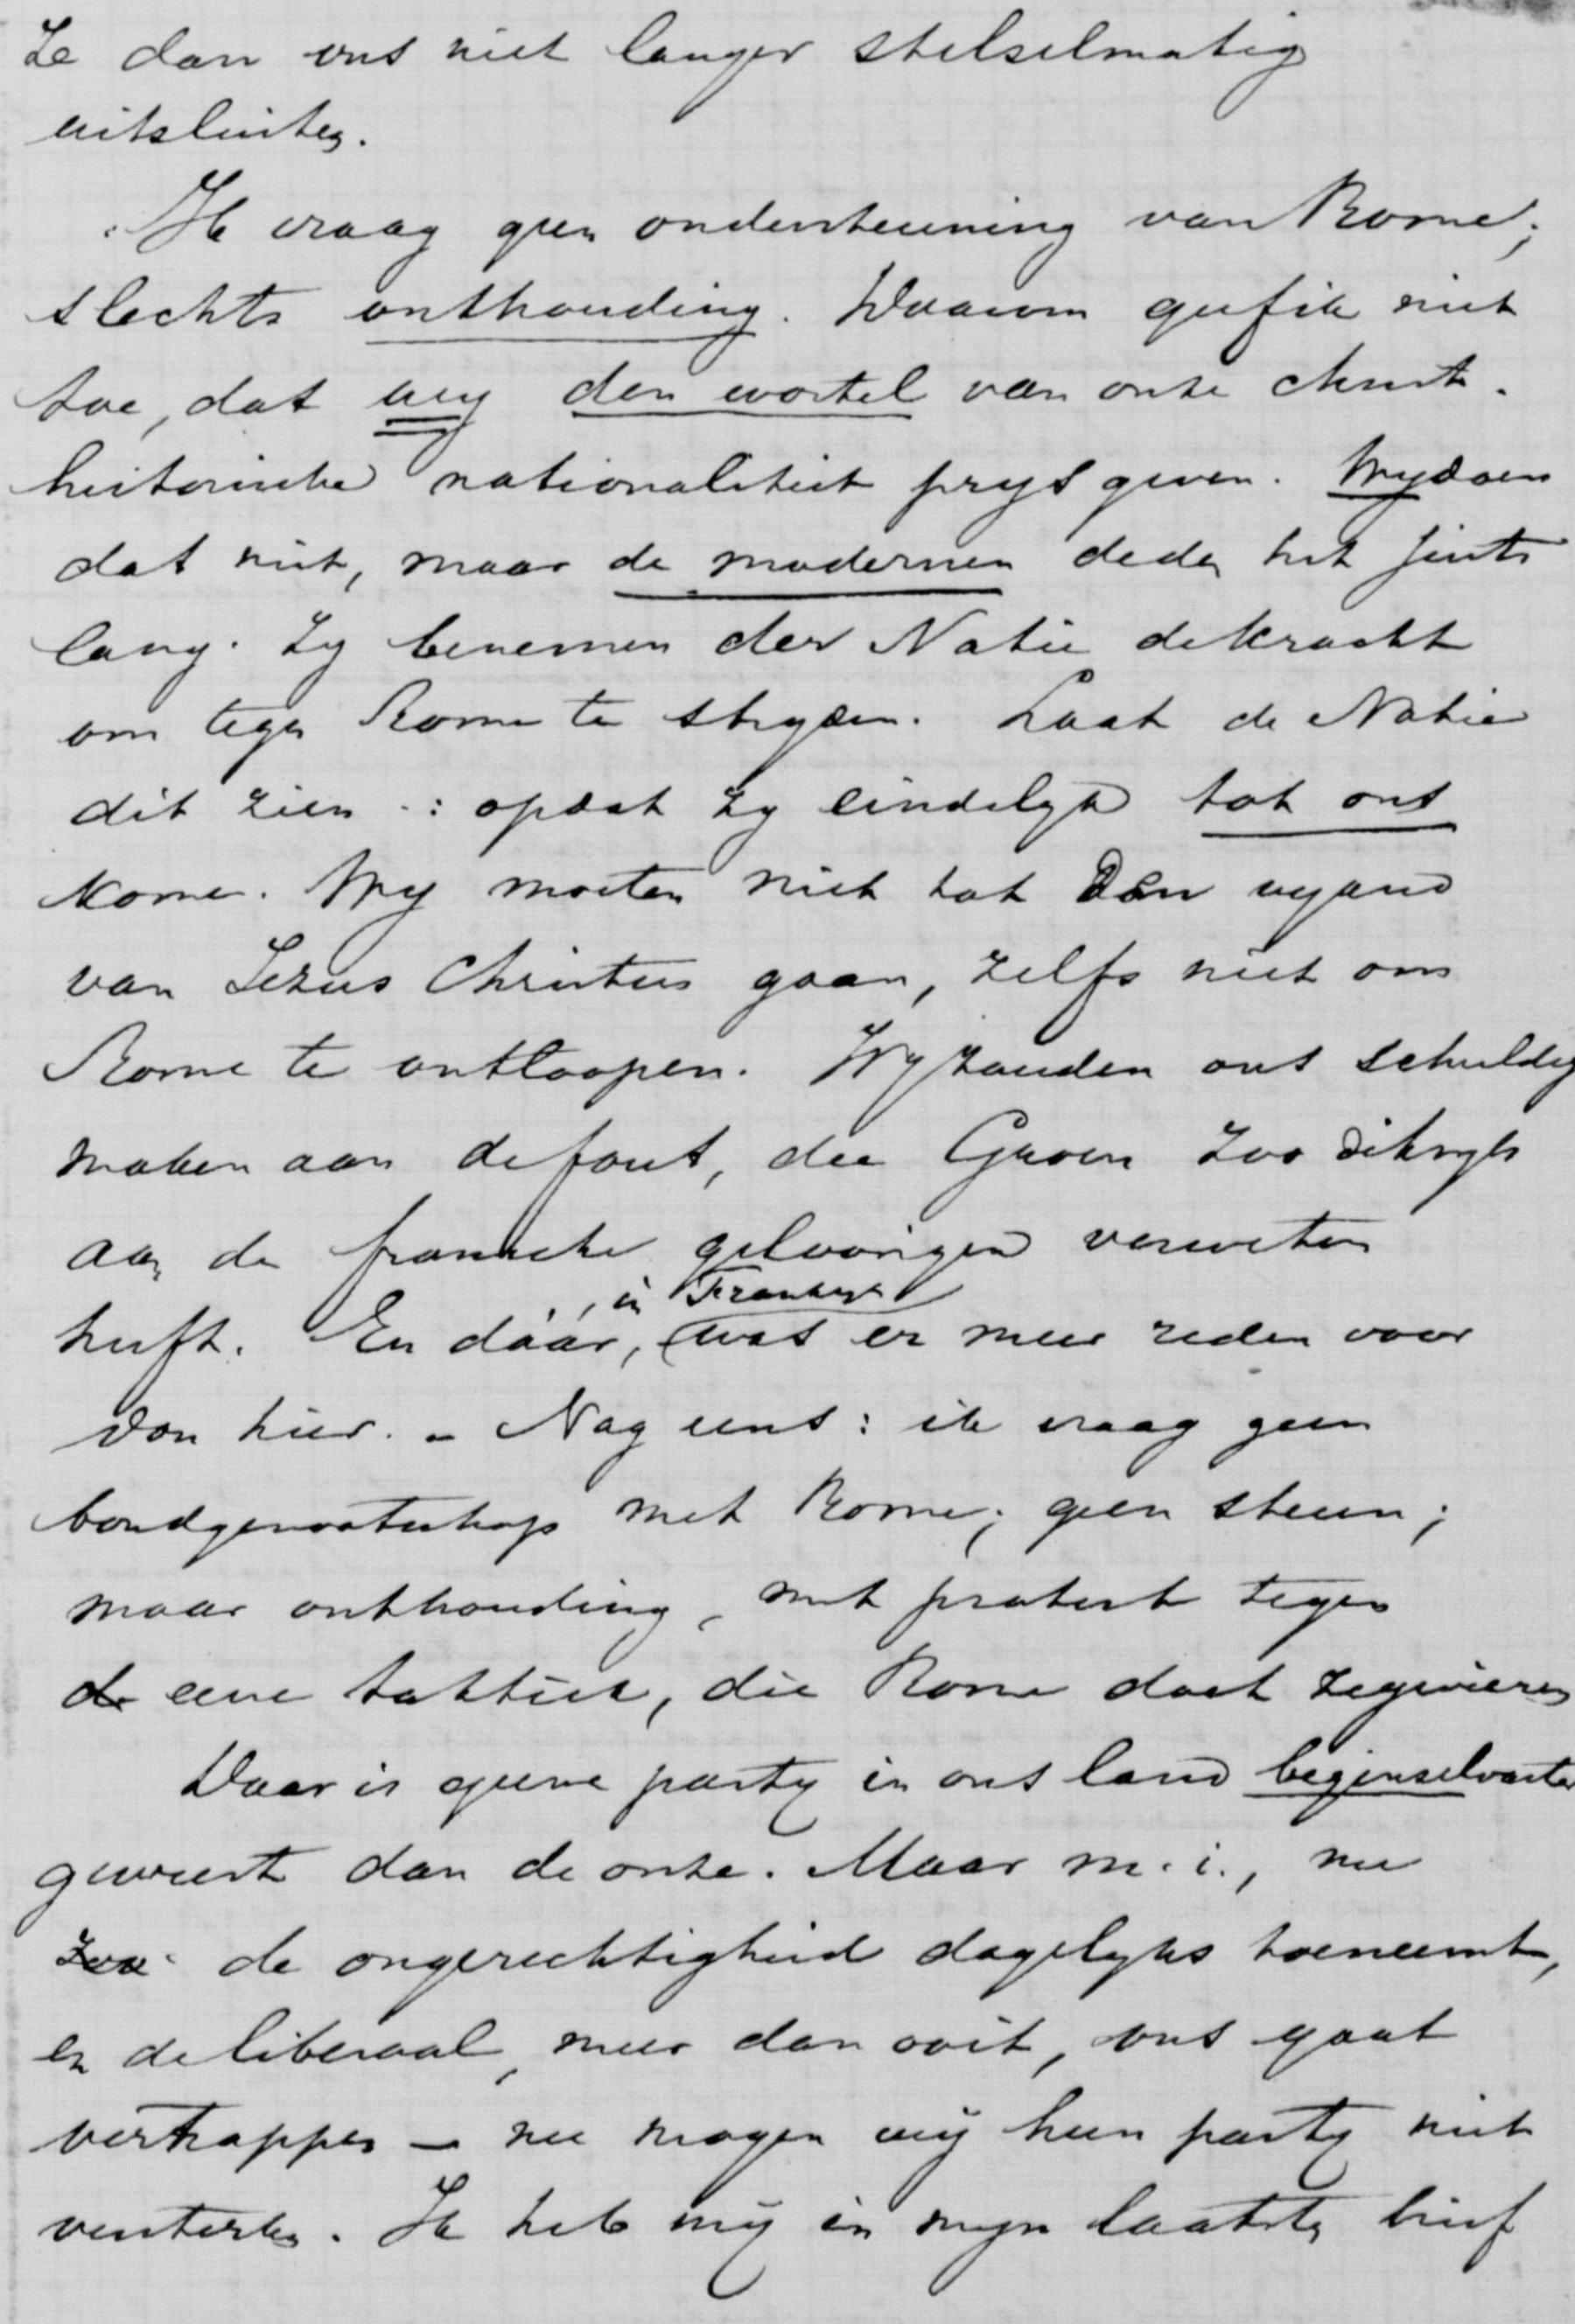 ze dan ons niet langer stelselmatig
uitsluiten.
Ik vraag geen ondersteuning van Rome;
slechts onthouding. Waarom geef ik niet
toe, dat wy den wortel van onze christ.
historische nationaliteit prys geven. Wy doen
dat niet, maar de modernen deden het sints
lang. Zy benemen der Natie de kracht
om tegen Rome te stryden. Laat de Natie
dit zien : opdat zy eindelyk tot ons
kome. Wy moeten niet tot den vyand
van Jezus Christus gaan, zelfs niet om
Rome te ontloopen. Wy zouden ons schuldig
maken aan de fout, die Groen zoo dikwyls
aan de fransche geloovigen verweten
heeft. En dáár, in Frankryk, was er meer reden voor
dan hier. – Nog eens: ik vraag geen
bondgenootschap met Rome; geen steun;
maar onthouding, met protest tegen
de eene taktiek, die Rome doet zegevieren
Daar is geene party in ons land beginselvaster
geweest dan de onze. Maar m.i., nu
zoo de ongerechtigheid dagelyks toeneemt,
en de liberaal, meer dan ooit, ons gaat
vertrappen – nu mogen wij hun party niet
versterken. Ik heb mij in myn laatsten brief